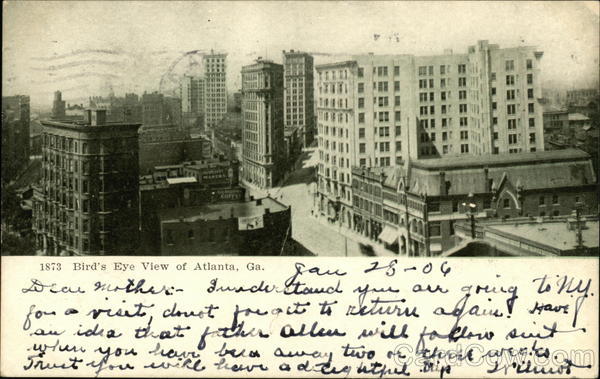 1873 Bird's Eye View of Atlanta, Ga.
Jan 23-06
Dear Mother- I understand you are going to N.Y.
for a visit, do not forget to return again. Have
an idea that father Allen will follow suit
when you have been away two or three weeks.
Trust you will have a delightful trip
CardCow.com